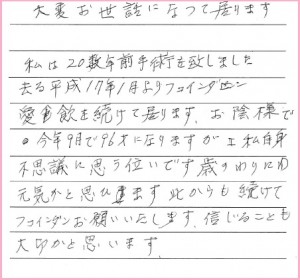 大変お世話になって居ります
私は20数年前手術を致しました
去る平成17年1月よりフコイダン
愛飲を続けて居ります。お陰様で
今年9月で96才になりますが 私自身
不思議に思う位いです歳のわりに
元気かと思ひます 此からも続けて
フコインダンお願いいたします。信じることも
大切かと思います。